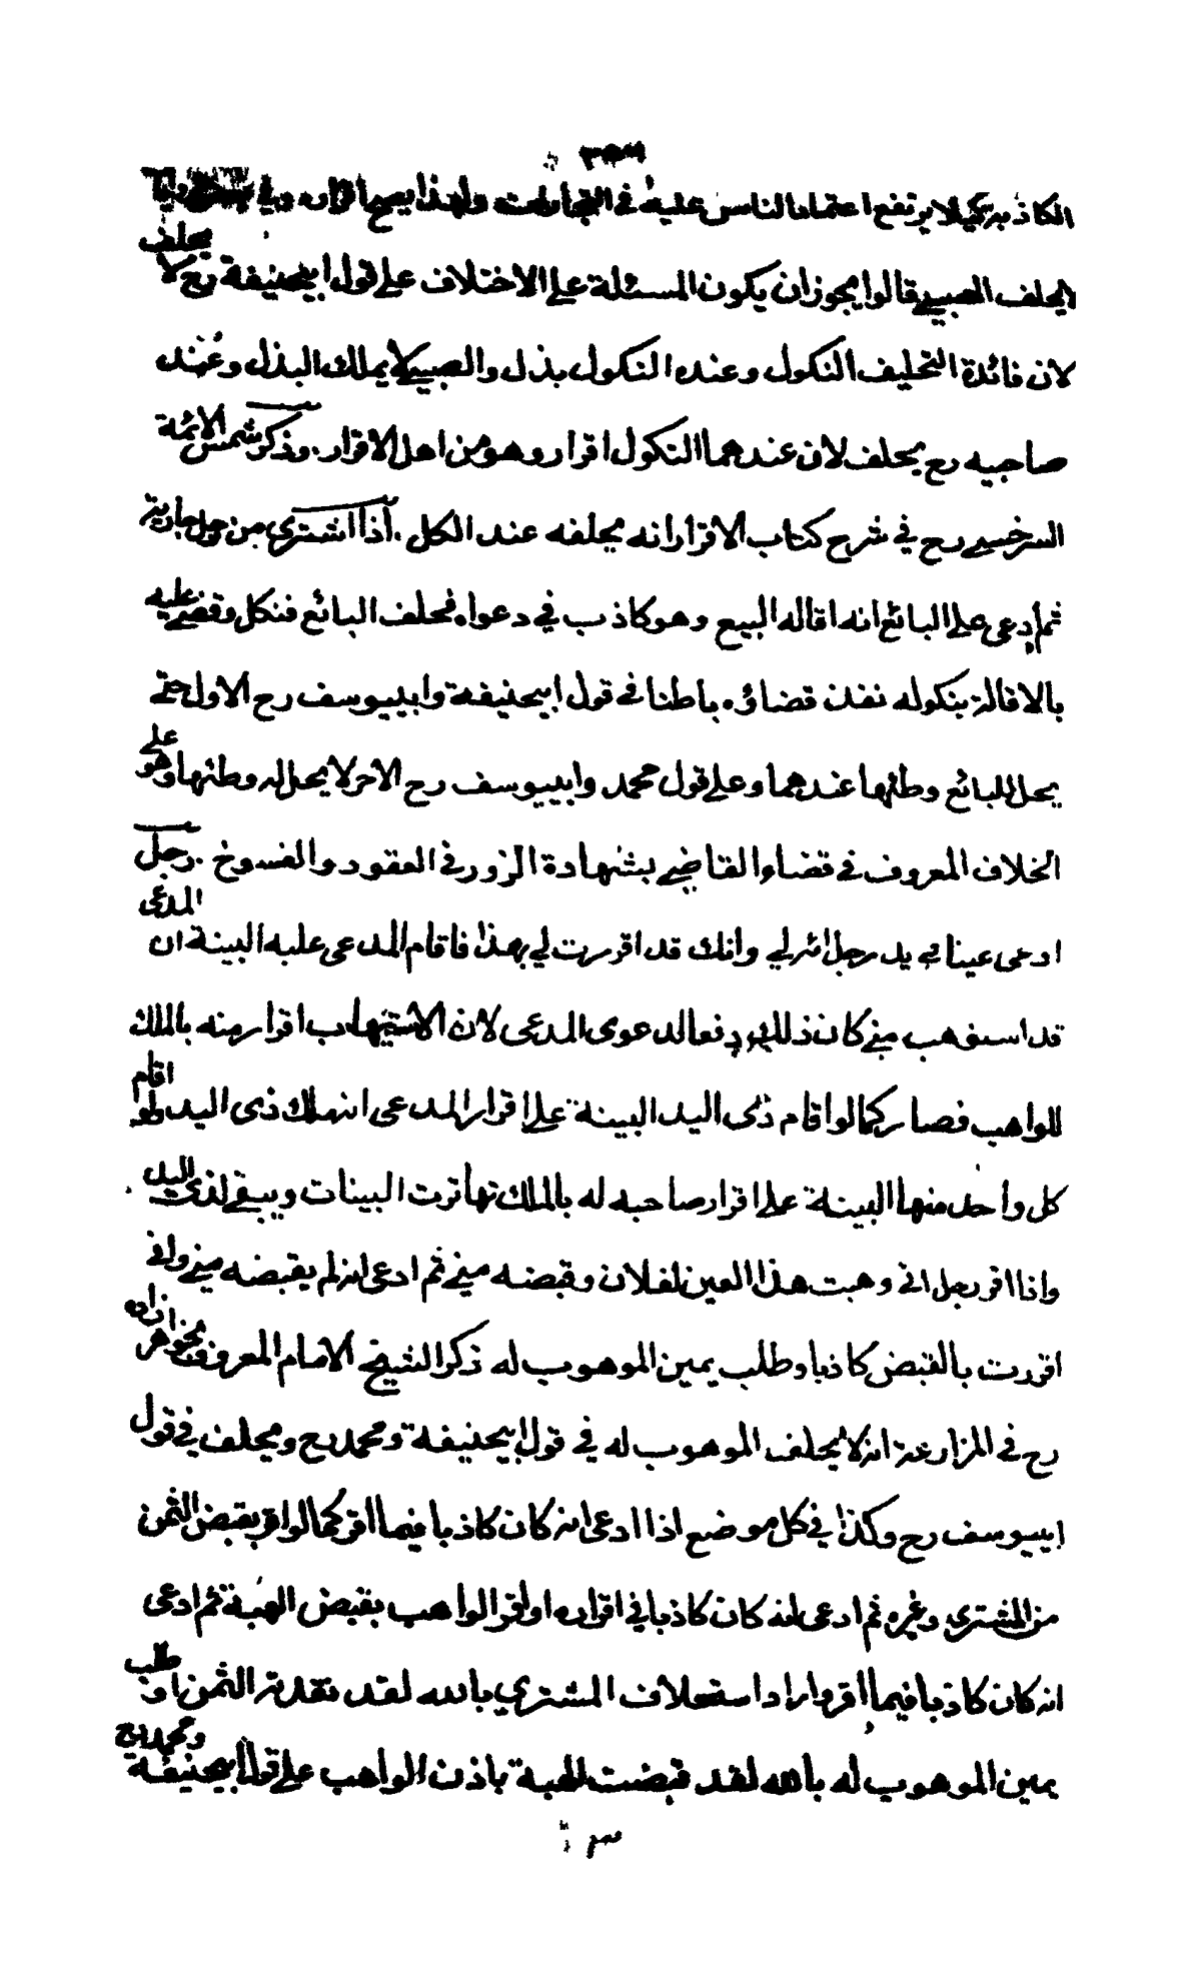 ٣٥٣
الكاذبة كيلا يرتفع اعتماد الناس عليه في التجارات ولهذا يصح اقراره وفي
يحلف الصبي قالوا يجوز ان يكون المسئلة على الاختلاف على قول ابيحنيفة رح لا يحلف
لان فائدة التحليف النكول وعنده النكول بذل والصبي لا يملك البذل وعند
صاحبيه رح يحلف لان عندهما النكول اقرار وهو من اهل الاقرار. وذكر شمس الائمة
السرخسي رح في شرح كتاب الاقرار انه يحلفه عند الكل. اذا اشترى من رجل جارية
ثم ادعى على البائع انه اقاله البيع وهو كاذب في دعواه فحلف البائع فنكل وقضي عليه
بالاقالة بنكوله نفذ قضاؤه باطنا في قول ابيحنيفة وابييوسف رح الاول حتى
يحل للبائع وطئها عندهما وعلى قول محمد وابييوسف رح الاخر لا يحل له وطئها وهو على
الخلاف المعروف في قضاء القاضي بشهادة الزور في العقود والفسوخ. رجل
ادعى عينا في يد رجل انه لي وانك قد اقررت لي بهذا فاقام المدعى عليه البينة ان المدعى
قد استوهب مني كان ذلك دفعا لدعوى المدعى لان الاستيهاب اقرار منه بالملك
للواهب فصار كما لو اقام ذى اليد البينة على اقرار المدعى انه ملك ذى اليد ولو اقام
كل واحد منها البينة على اقرار صاحبه له بالملك تهاترت البينات ويبقى لذى اليد.
واذا اقر رجل اني وهبت هذا العين لفلان وقبضه مني ثم ادعى انه لم يقبضه مني واني
اقررت بالقبض كاذبا وطلب يمين الموهوب له ذكر الشيخ الامام المعروف بخواهر زاده
رح في المزارعة انه لا يحلف الموهوب له في قول ابيحنيفة ومحمد رح ويحلف في قول
ابييوسف رح وكذا في كل موضع اذا ادعى انه كان كاذبا فيما اقر كما لو اقر بقبض الثمن
من المشتري وغيره ثم ادعى انه كان كاذبا في اقراره او اقر الواهب بقبض الهبة ثم ادعى
انه كان كاذبا فيما اقر واراد استحلاف المشتري بالله لقد نقدته الثمن او طلب
يمين الموهوب له بالله لقد قبضت الهبة باذن الواهب على قول ابيحنيفة ومحمد رح